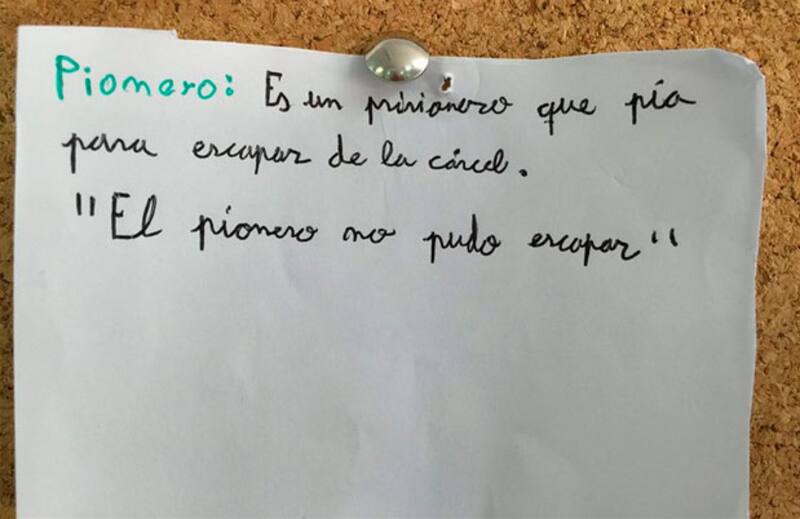 Pionero: Es un prisionero que pía
para escapar de la cárcel.
"El pionero no pudo escapar"